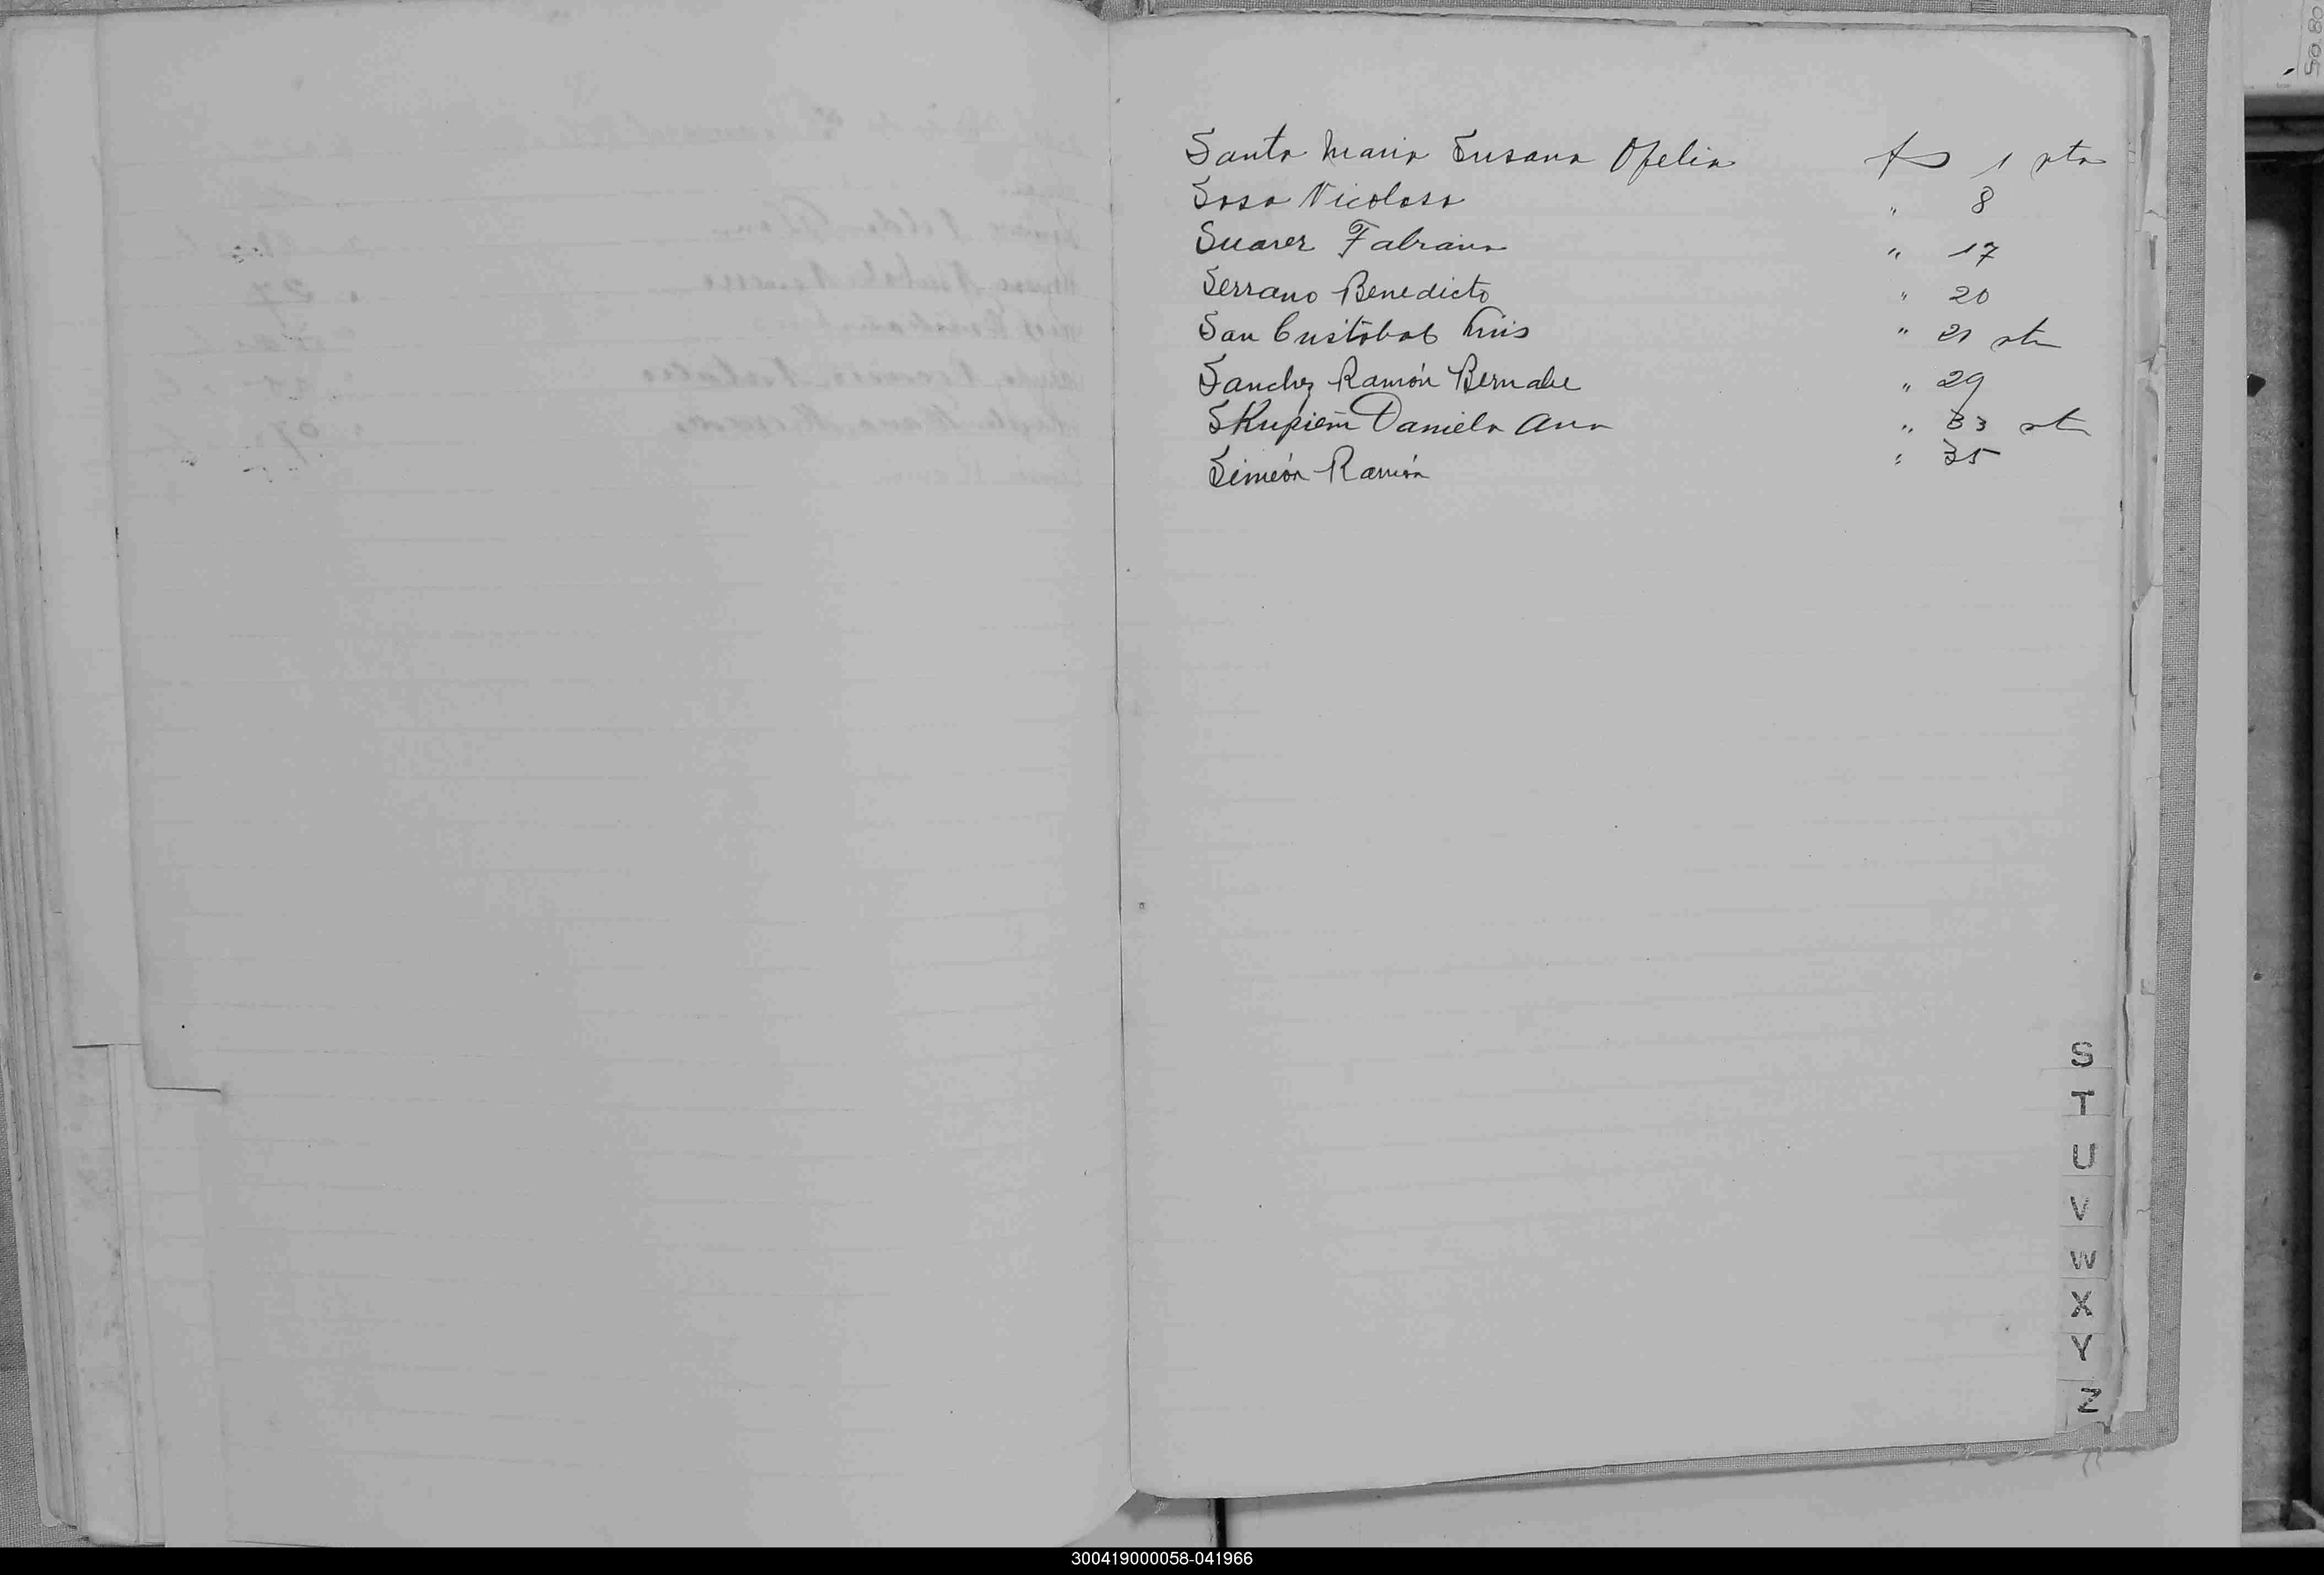 Santa Maria Susana Ofelia fs 1 vta
Sosa Nicolasa " 8
Suarez Fabiana " 17
Serrano Benedicto " 20
San Cristóbal Luis " 21 vta
Sanchez Ramón Bernabe " 29
Daniela Ana " 33 vta
Simeón Ramón " 35
S
T
U
V
W
X
Y
Z
300419000058-041966